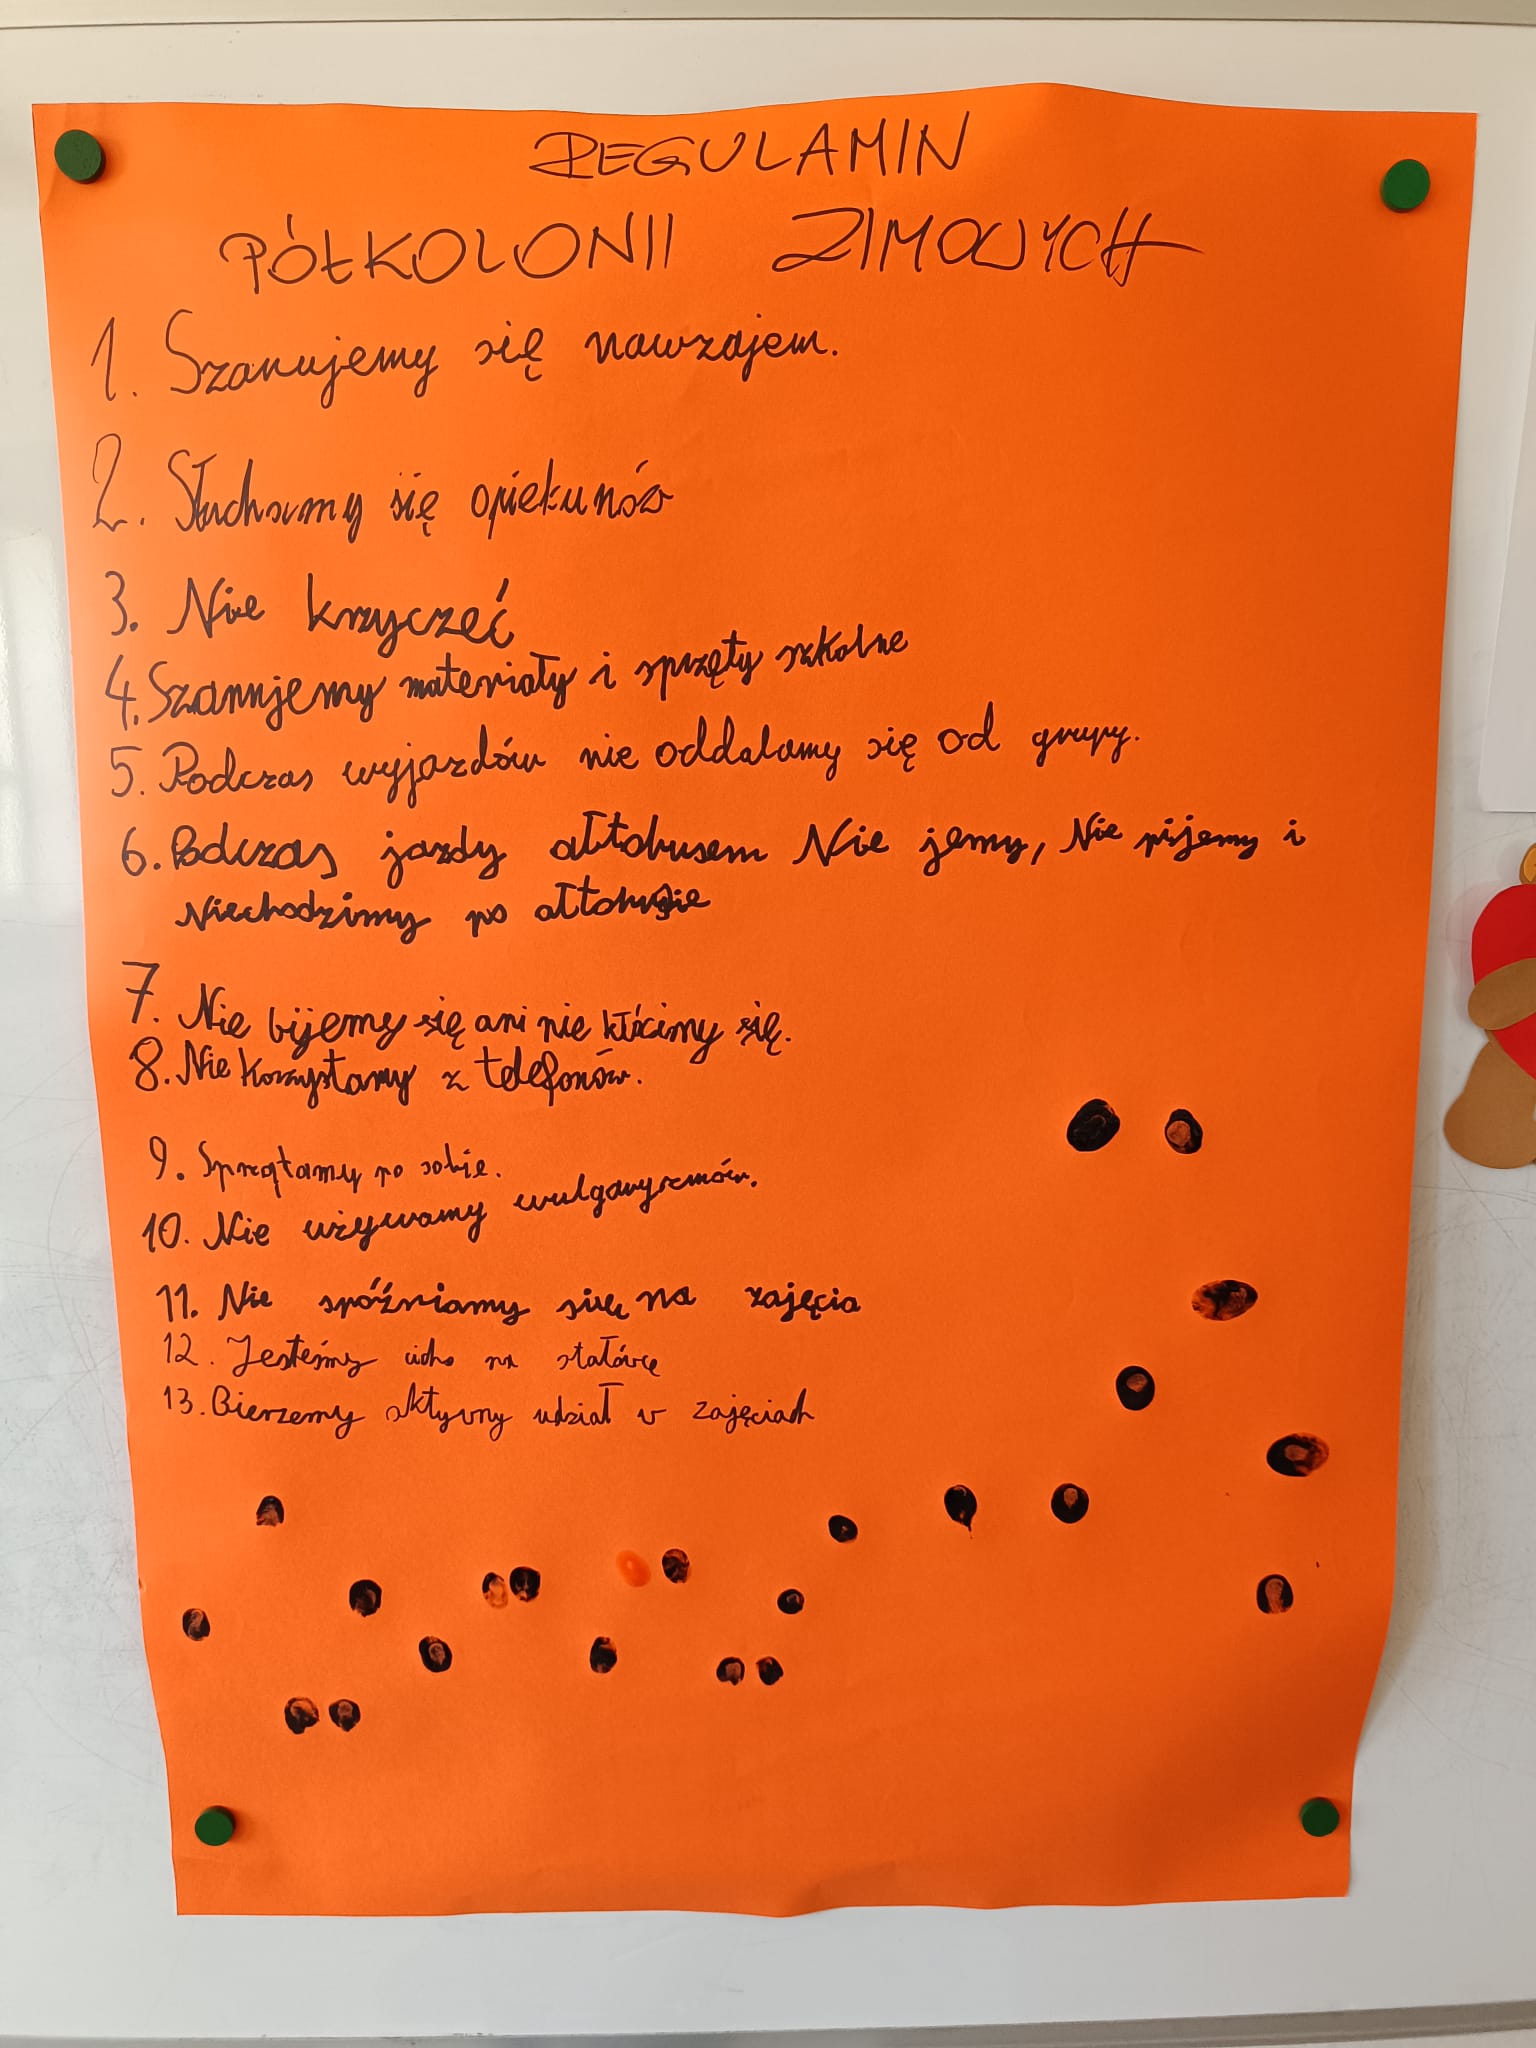 REGULAMIN
PÓŁKOLONII ZIMOWYCH
1. Szanujemy się nawzajem.
2. Słuchamy się opiekunów
3. Nie krzyczeć
4. Szanujemy materiały i sprzęty szkolne
5. Podczas wyjazdów nie oddalamy się od grupy.
6. Podczas jazdy ałtobusem Nie jemy, Nie pijemy i
Niechodzimy po ałtobusie
7. Nie bijemy się ani nie kłócimy się.
8. Nie korzystamy z telefonów.
9. Sprzątamy po sobie.
10. Nie używamy wulgaryzmów.
11. Nie spóźniamy się na zajęcia
12. Jesteśmy cicho na stałówce
13. Bierzemy aktywny udział w zajęciach